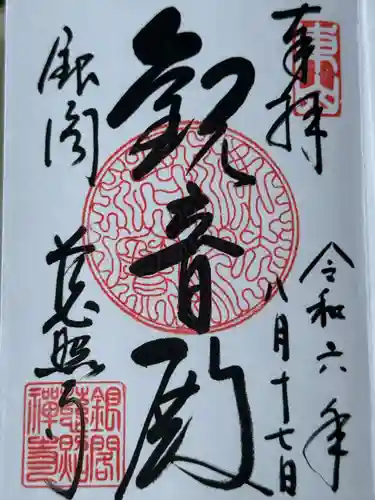 奉拝
東山
令和六年
八月十七日
観音殿
銀閣
慈照寺
銀閣
慈照
禅寺